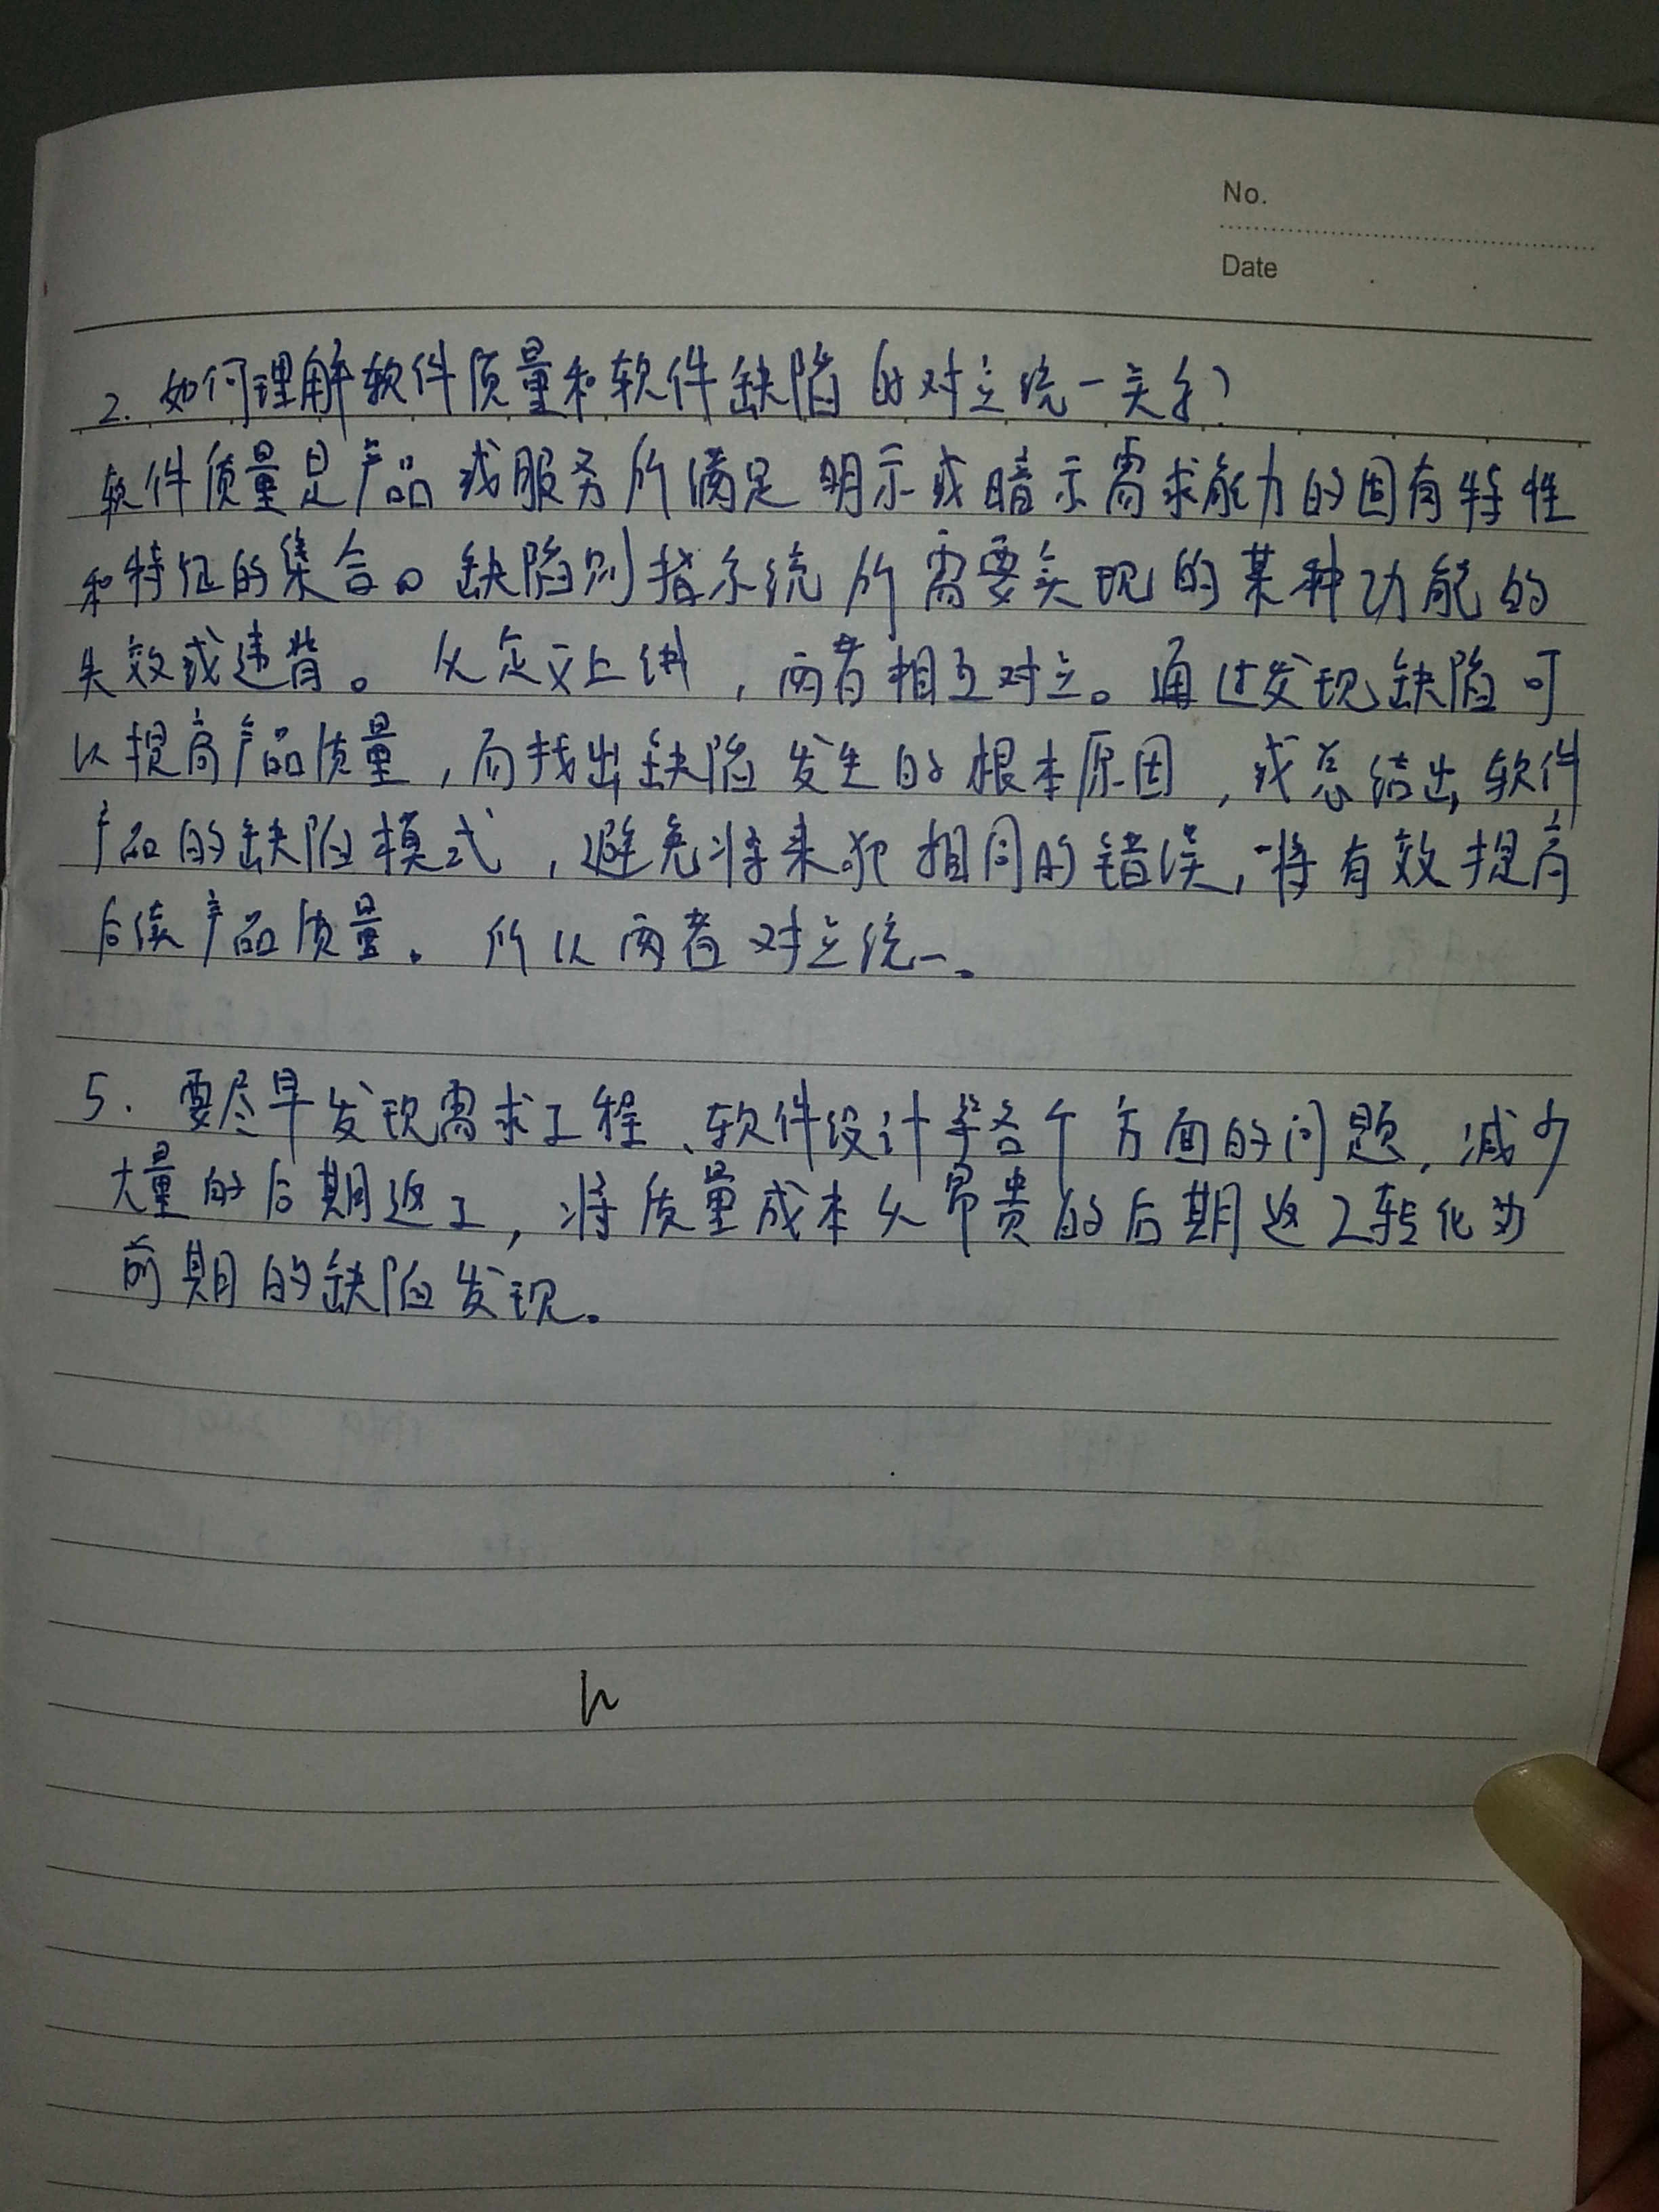 No.
Date
2. 如何理解软件质量和软件缺陷的对立统一关系?
软件质量是产品或服务所满足明示或暗示需求能力的固有特性
和特征的集合。缺陷则指系统所需要实现的某种功能的
失效或违背。从定义上讲，两者相互对立。通过发现缺陷可
以提高产品质量，而找出缺陷发生的根本原因，或总结出软件
产品的缺陷模式，避免将来犯相同的错误，将有效提高
后续产品质量。所以两者对立统一。
5. 要尽早发现需求工程、软件设计等各个方面的问题，减少
大量的后期返工，将质量成本从昂贵的后期返工转化为
前期的缺陷发现。